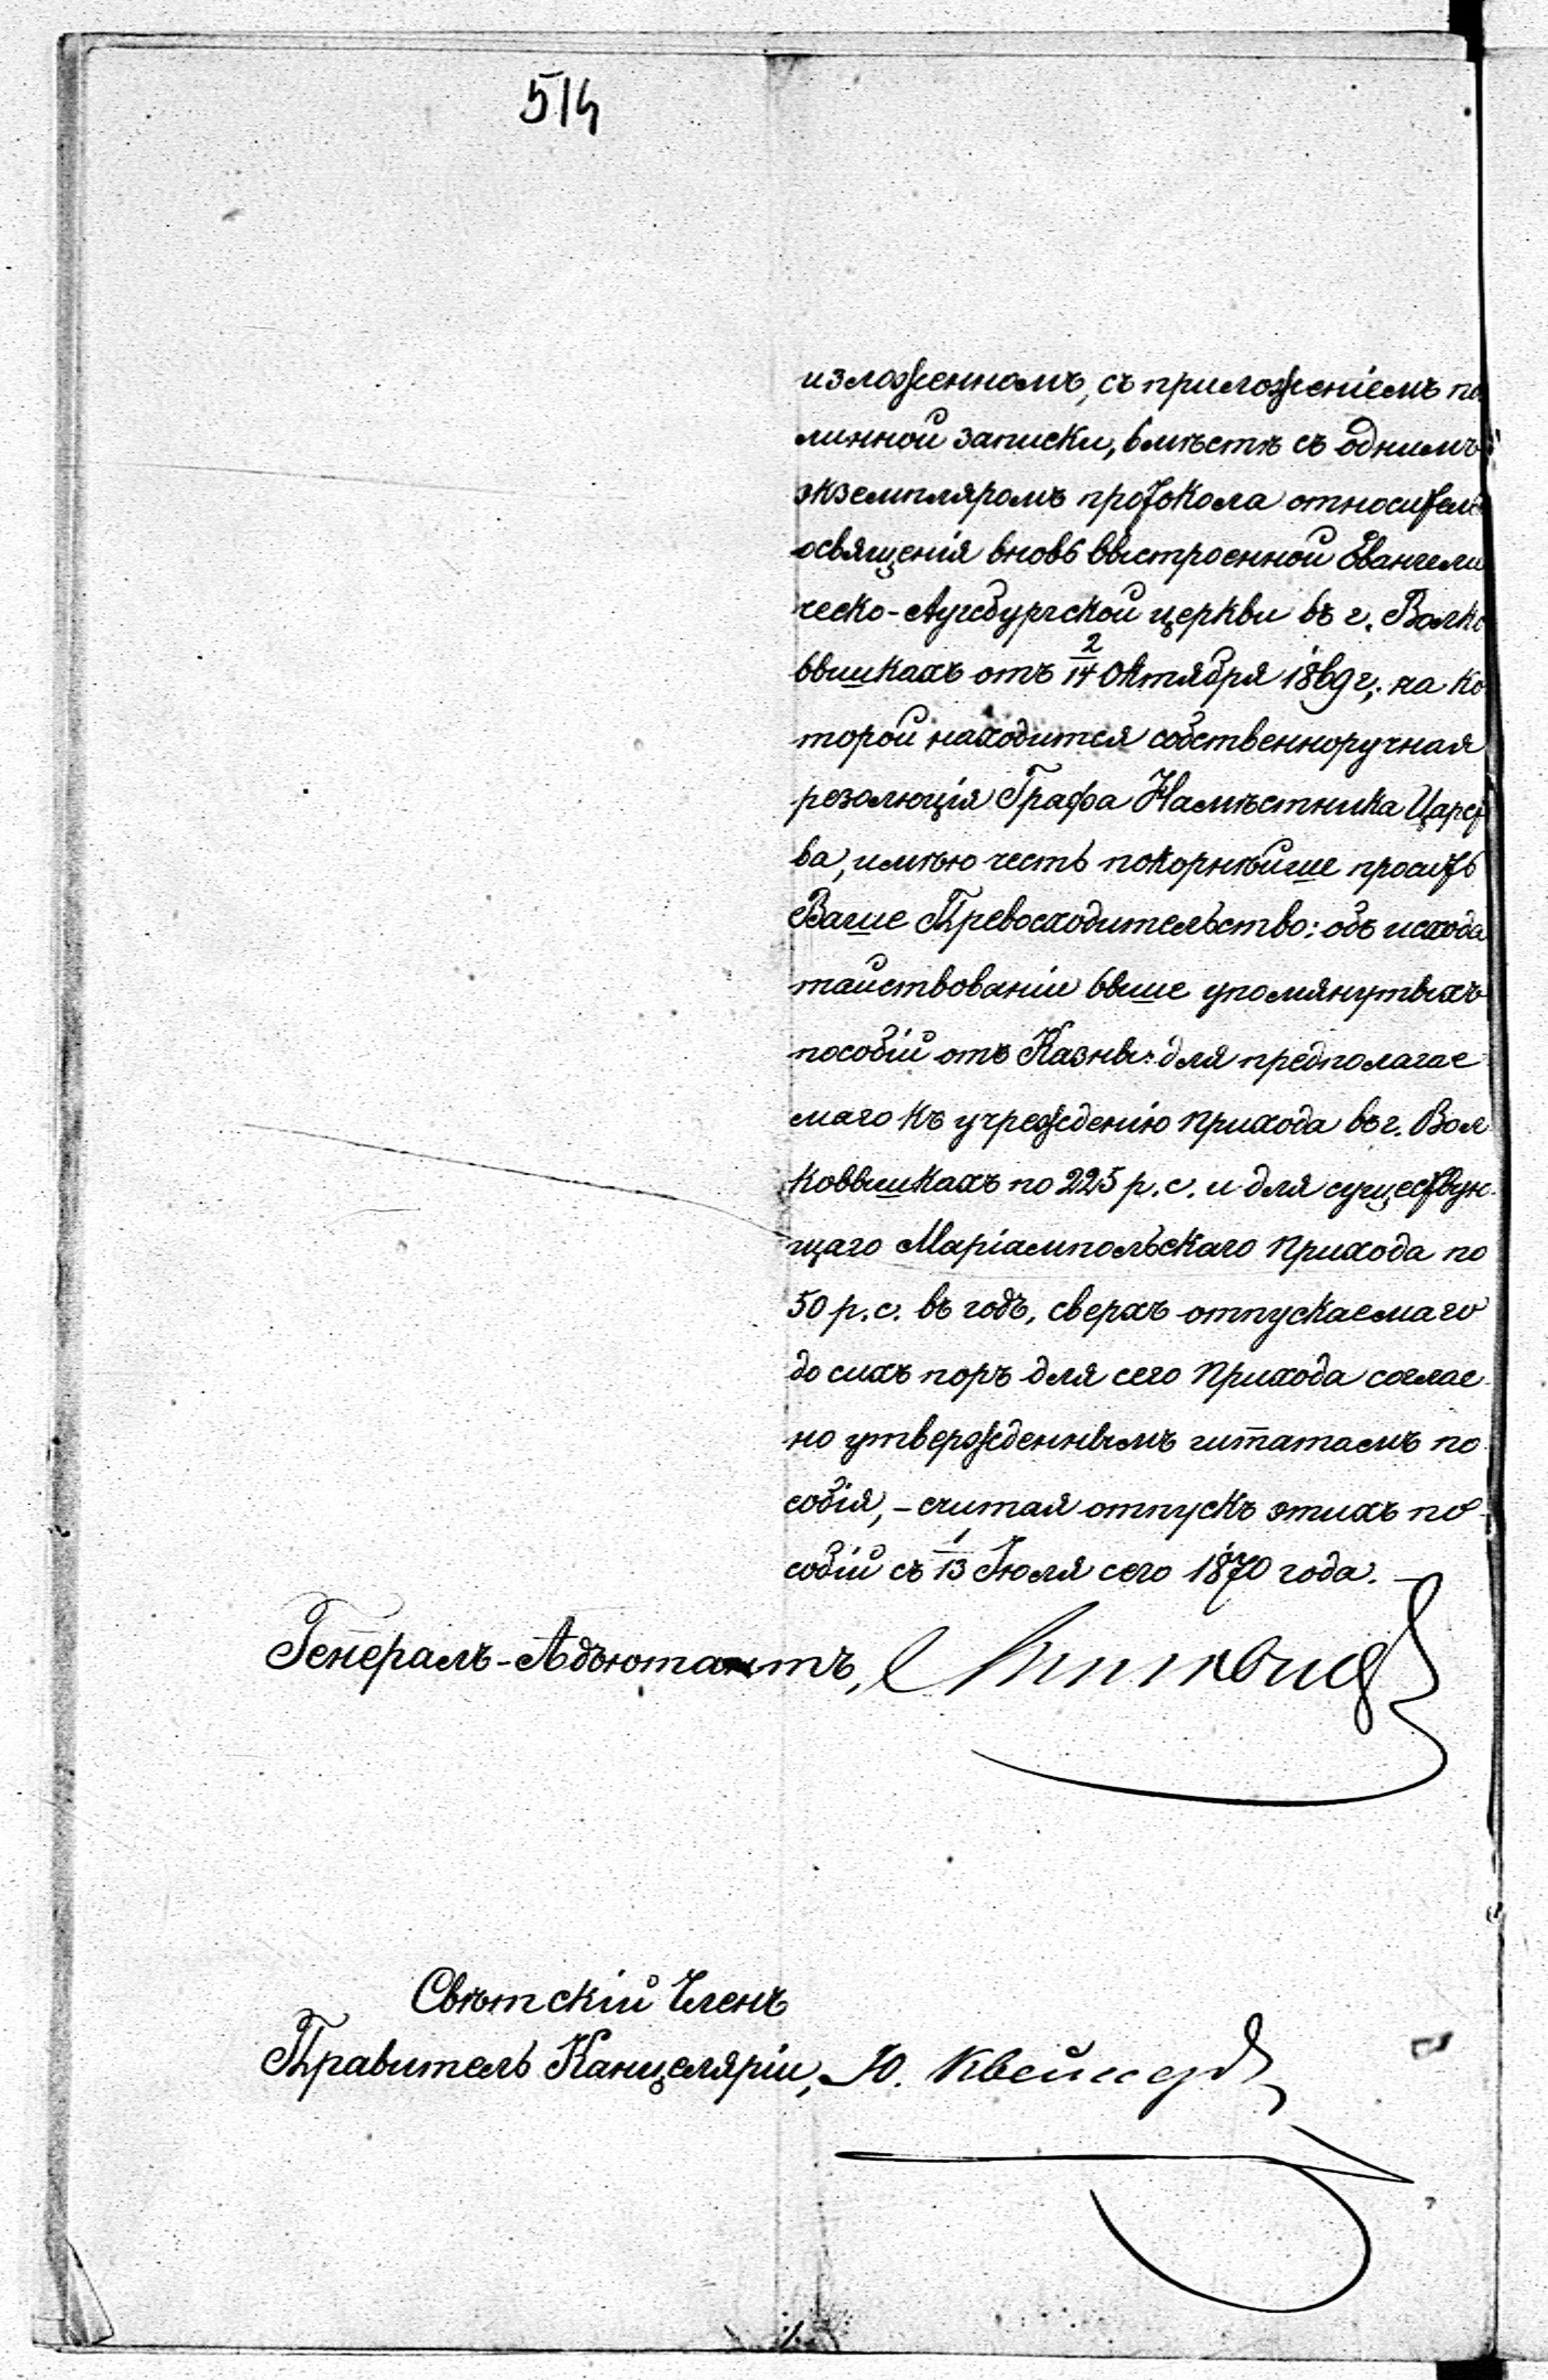 514
изложенномъ, съ приложеніемъ по
линной записки, вмѣстѣ съ однимъ
экземпляромъ протокола относител
освященія вновь выстроенной Евангели
ческо-Аугсбургской церкви въ г. Волко
вышкахъ отъ 2/14 Октября 1869 г., на ко
торой находится собственноручная
резолюція Графа Намѣстника Царст
ва, имѣю честь покорнѣйше просить
Ваше Превосходительство: объ исхода
тайствованіи выше упомянутыхъ
пособій отъ Казны: для предполагае
маго къ учрежденію прихода въ г. Вол
ковышкахъ по 225 р. с. и для существую
щаго Маріампольскаго прихода по
50 р. с. въ годъ, сверхъ отпускаемаго
до сихъ поръ для сего прихода соглас
но утвержденнымъ штатамъ по
собія, - считая отпускъ этихъ по
собій съ 1/13 Іюля сего 1870 года. -
Генералъ-Адъютантъ,
Свѣтскій Членъ
Правитель Канцеляріи, Ю.